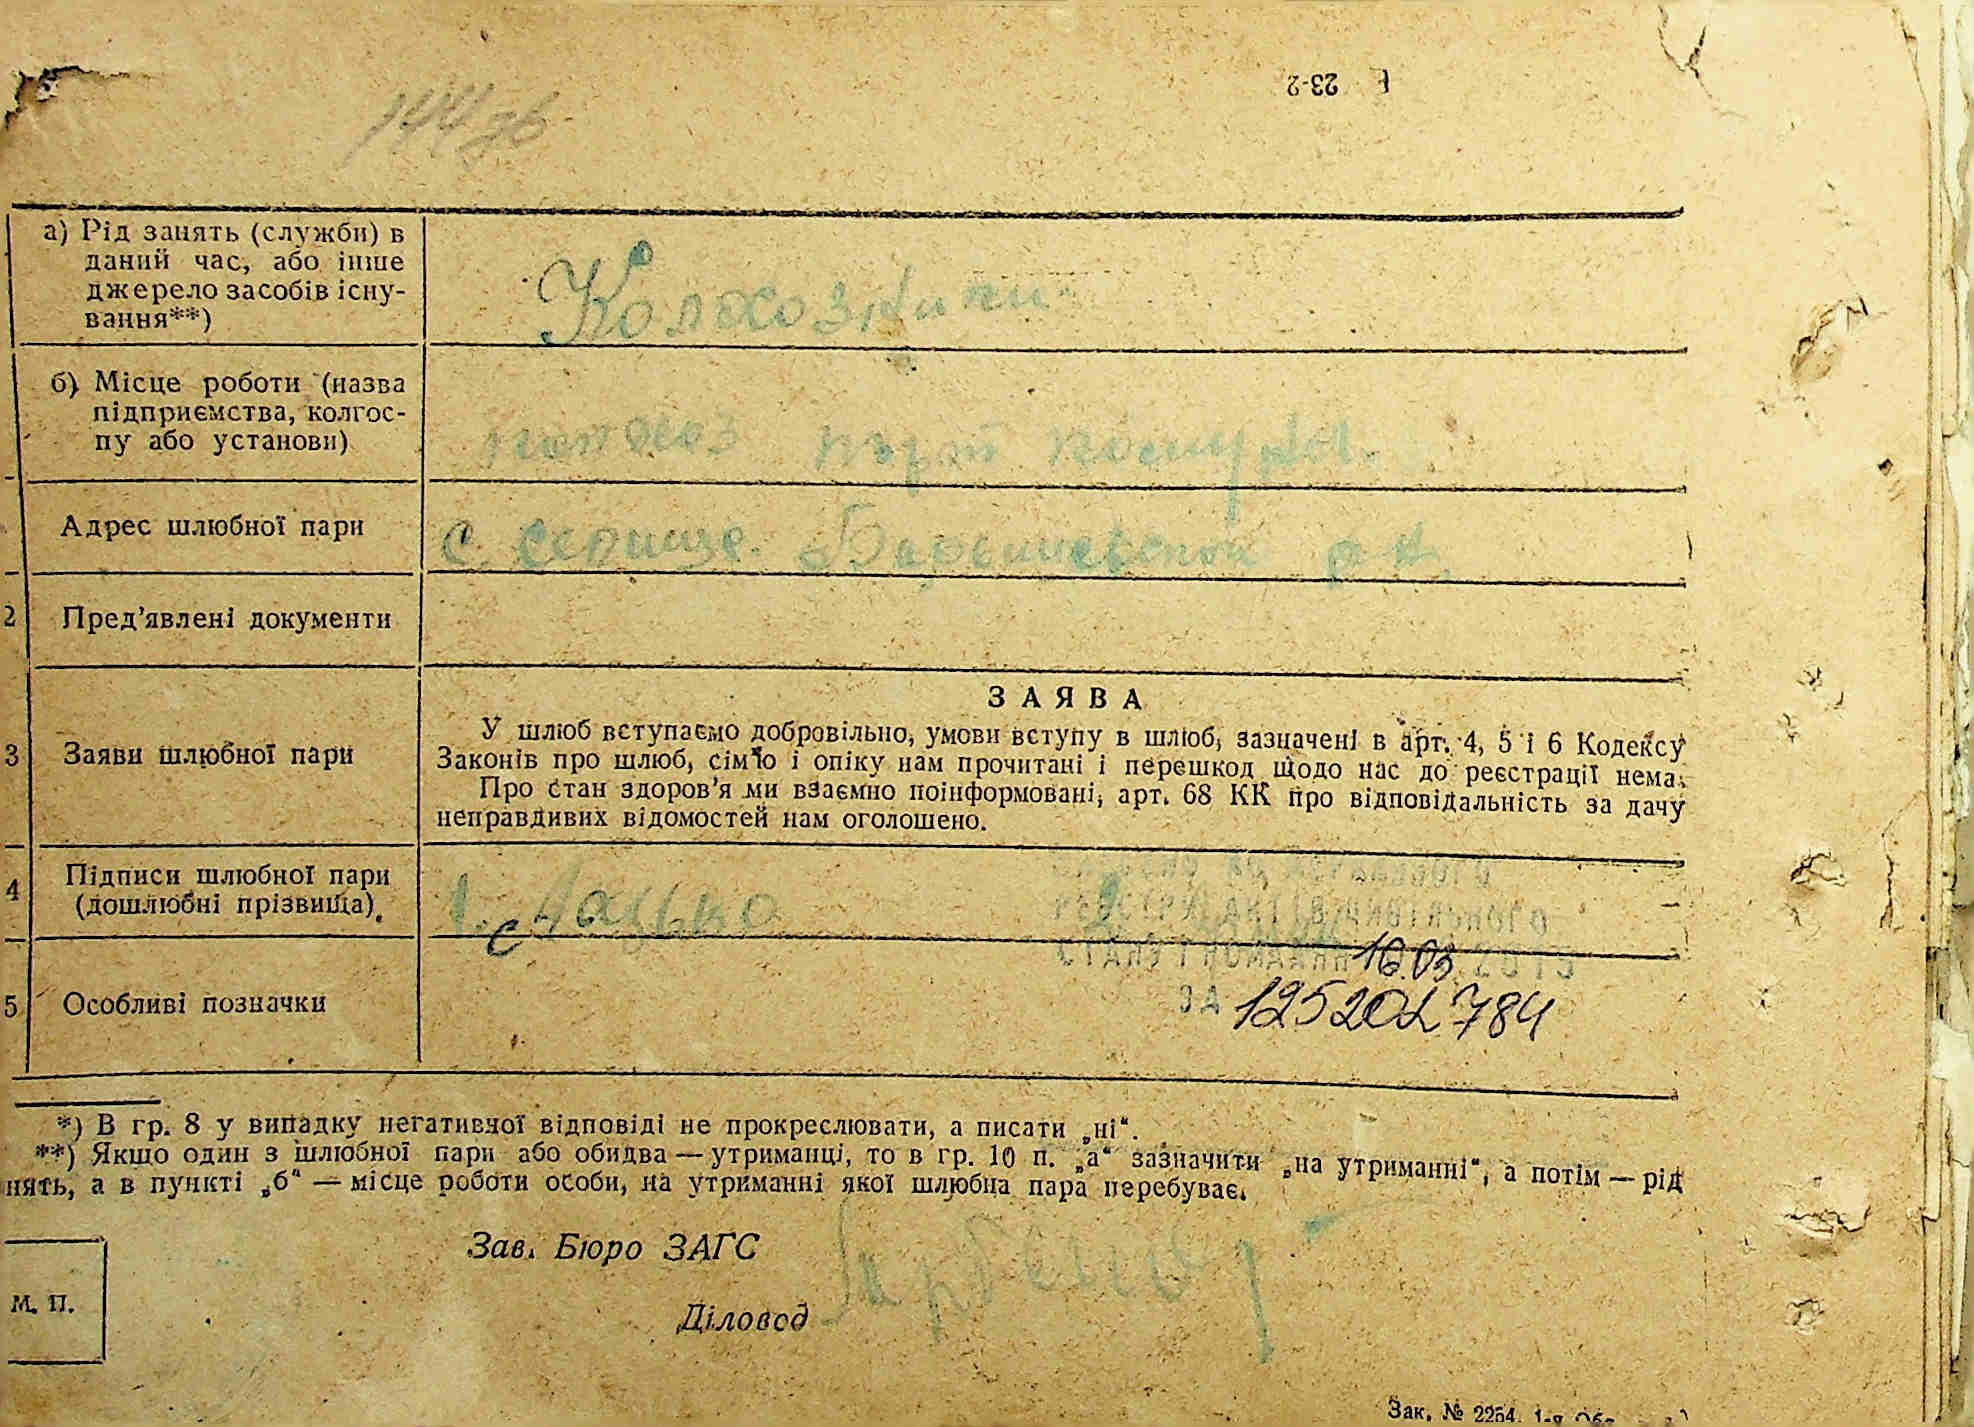 144зв
23-2
а) Рід занять (служби) в
даний час, або інше
джерело засобів існу-
вання**)
Колхозники
б) Місце роботи (назва
підприємства, колгос-
пу або установи)
колхоз
Адрес шлюбної пари
с. Селище. Баришевской р-н.
2 Пред’явлені документи
3 Заяви шлюбної пари
ЗАЯВА
У шлюб вступаємо добровільно, умови вступу в шлюб, зазначені в арт. 4, 5 і 6 Кодексу
Законів про шлюб, сім’ю і опіку нам прочитані і перешкод щодо нас до реєстрації нема.
Про стан здоров’я ми взаємно поінформовані, арт. 68 КК про відповідальність за дачу
неправдивих відомостей нам оголошено.
4 Підписи шлюбної пари
(дошлюбні прізвища)
1. 2.
16.03
5 Особливі позначки
ЗА 125202784
*) В гр. 8 у випадку негативної відповіді не прокреслювати, а писати „ні“.
**) Якщо один з шлюбної пари або обидва — утриманці, то в гр. 10 п. „а“ зазначити „на утриманні“, а потім — рід
нять, а в пункті „б“ — місце роботи особи, на утриманні якої шлюбна пара перебуває.
Зав. Бюро ЗАГС
М. П.
Діловод
Зак. № 2254. 1-я